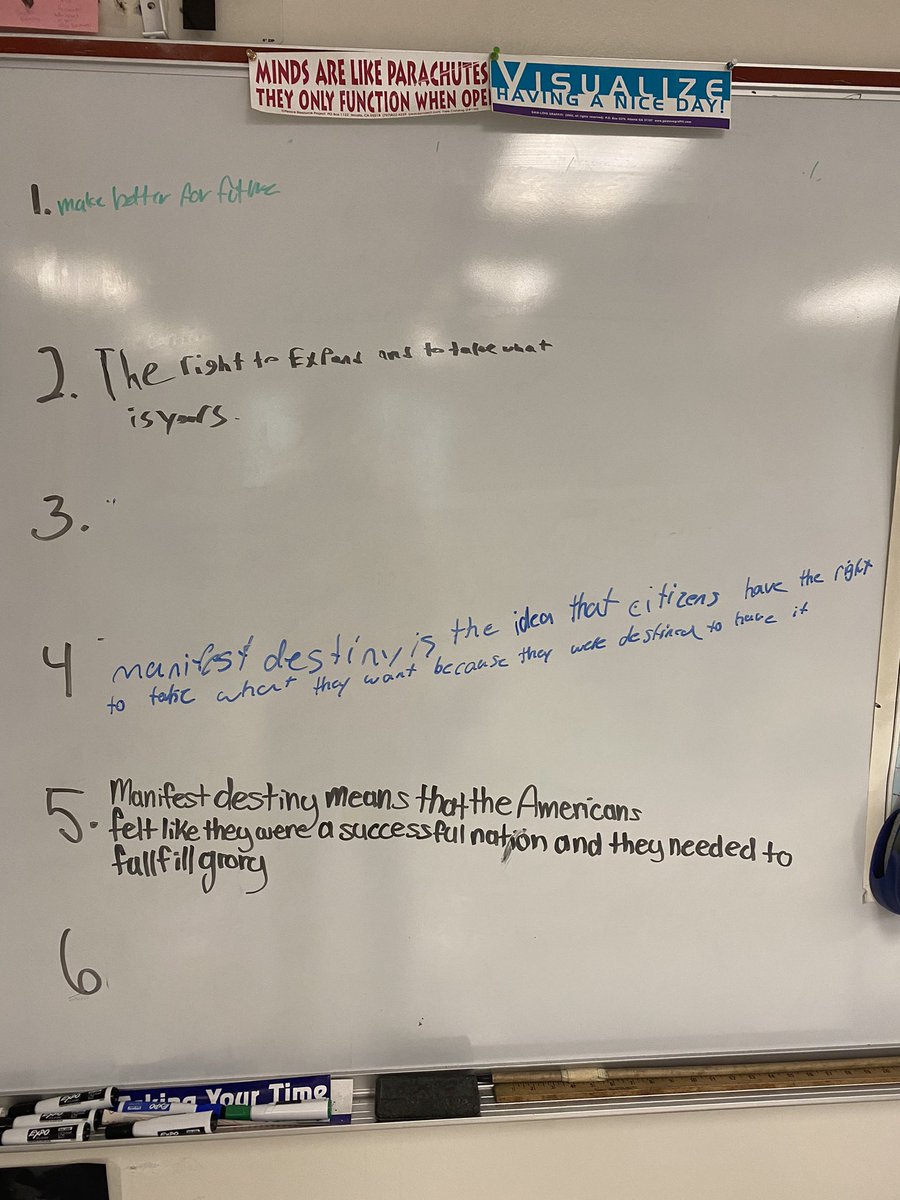 MINDS ARE LIKE PARACHUTES
THEY ONLY FUNCTION WHEN OPE
VISUALIZE
HAVING A NICE DAY!
1. make better for future
2. The right to Expand and to take what
is yours.
3.
4 manifest destiny is the idea that citizens have the right
to take what they want because they were destined to have it
5. Manifest destiny means that the Americans
felt like they were a successful nation and they needed to
fullfill grory
6.
Taking Your Time
EXPO
EXPO
EXPO